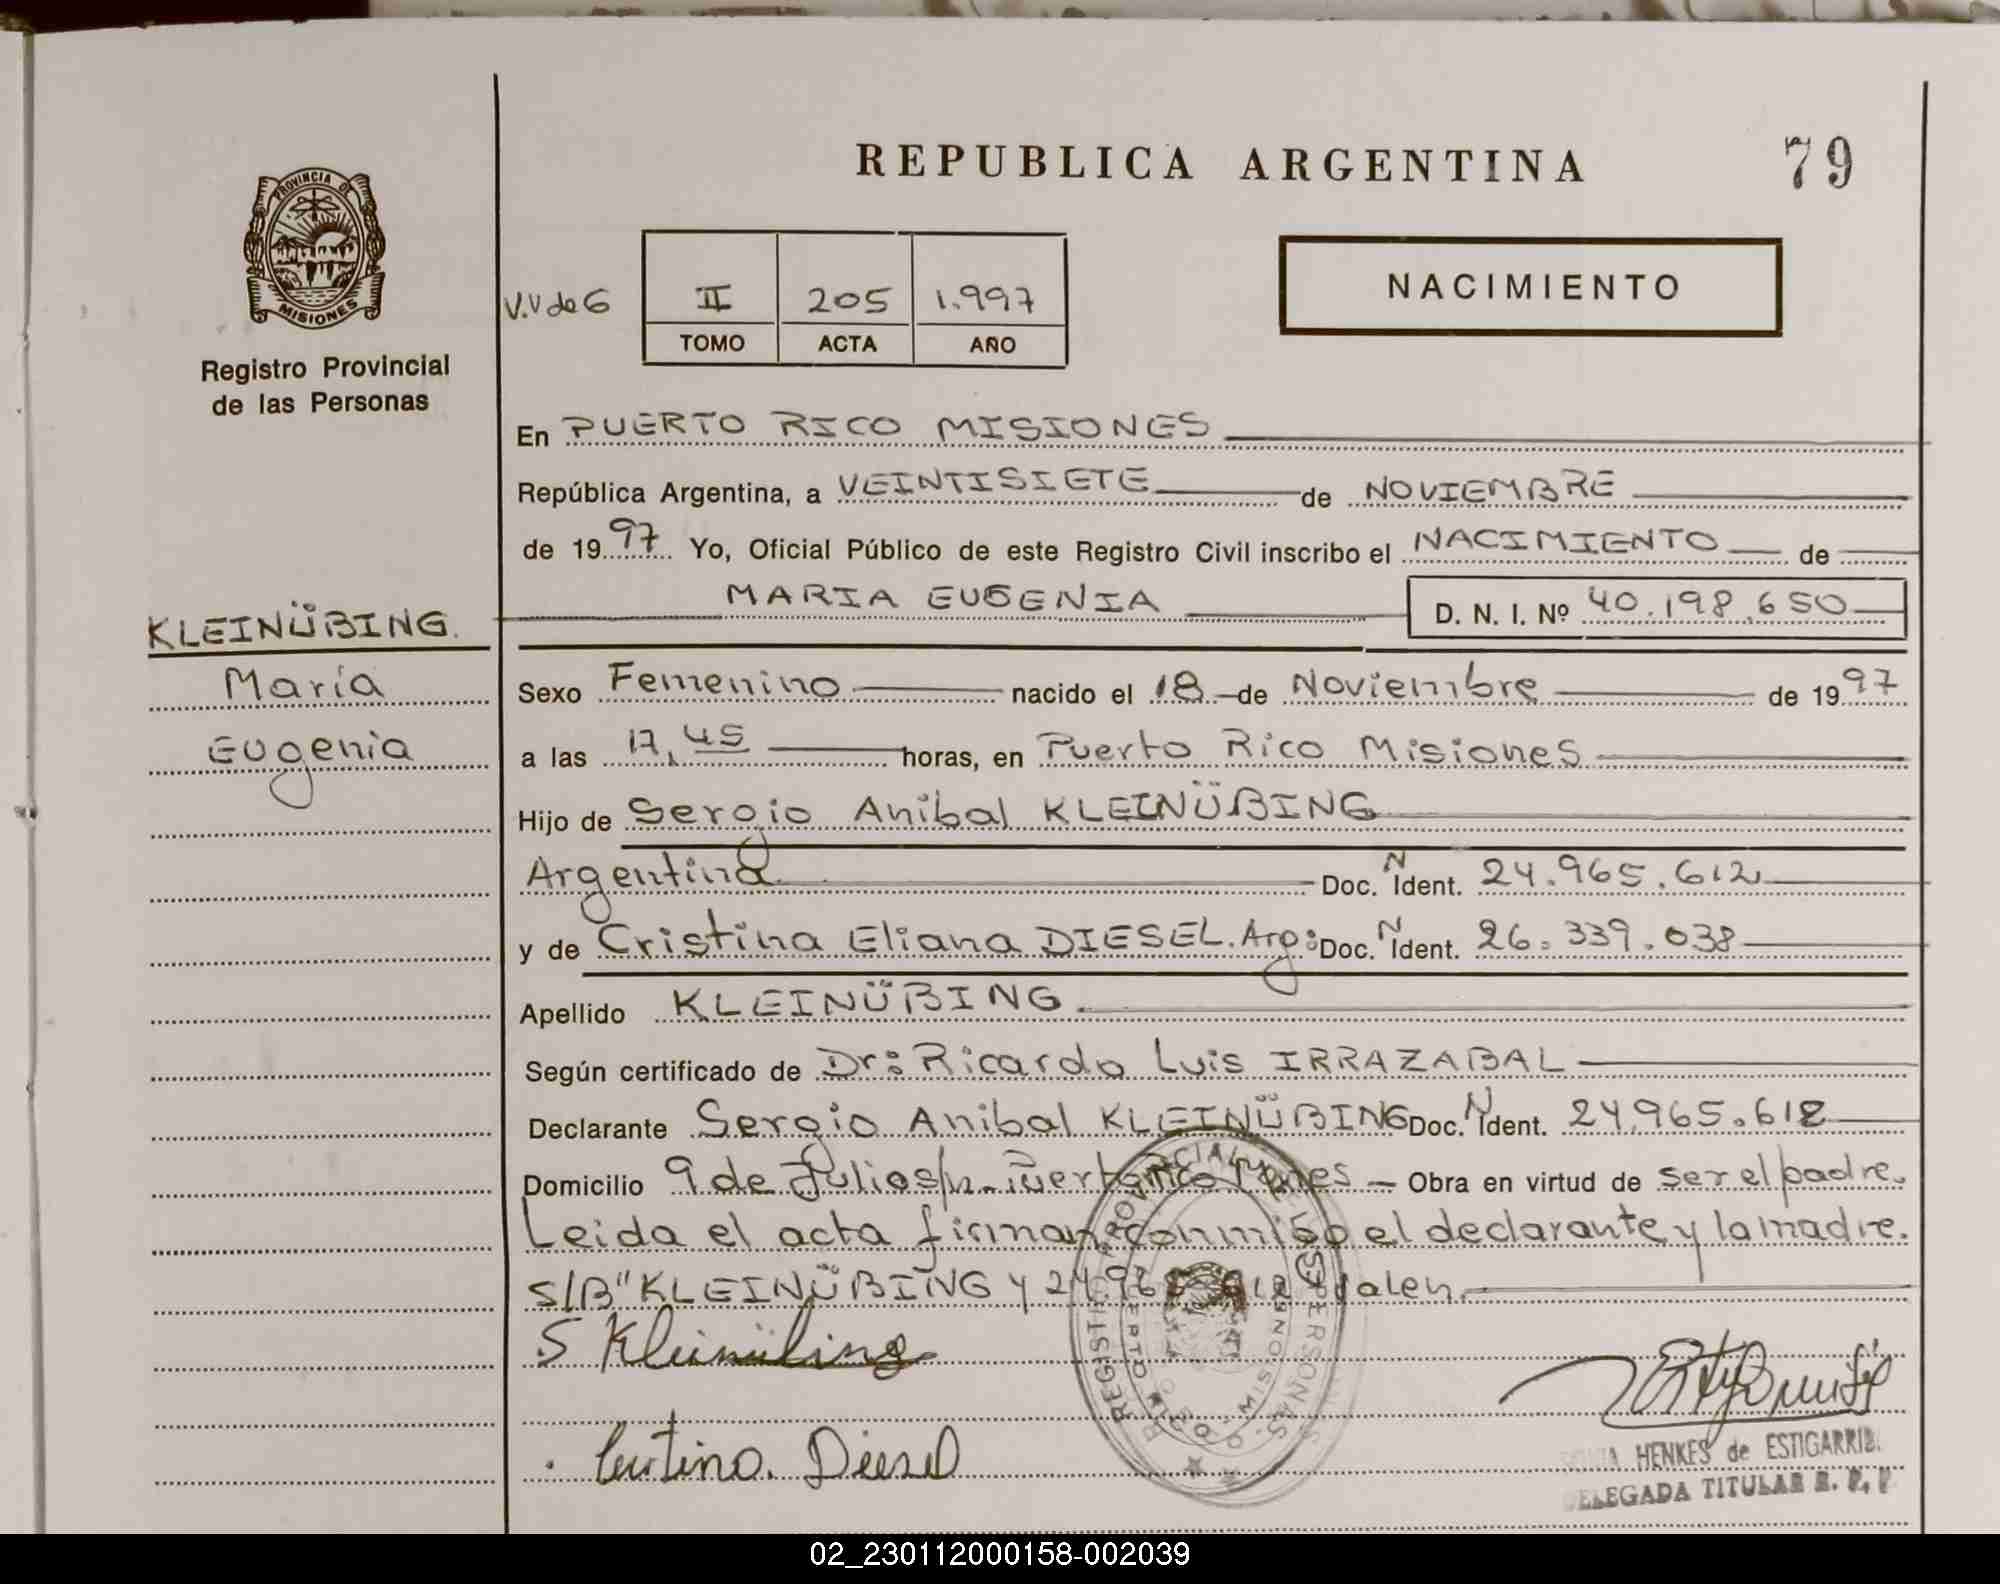 REPUBLICA ARGENTINA
79
PROVINCIA DE
MISIONES
Registro Provincial
de las Personas
V.V de G
II 205 1.997
TOMO ACTA AÑO
NACIMIENTO
En PUERTO RICO MISIONES
República Argentina, a VEINTISIETE de NOVIEMBRE
de 1997 Yo, Oficial Público de este Registro Civil inscribo el NACIMIENTO de
MARIA EUGENIA D. N. I. Nº 40.198.650
KLEINÜBING.
María
Eugenia
Sexo Femenino nacido el 18 de Noviembre de 1997
a las 17,45 horas, en Puerto Rico Misiones
Hijo de Sergio Anibal KLEINÜBING
Argentina Doc. N Ident. 24.965.612
y de Cristina Eliana DIESEL. Arg: Doc. N Ident. 26.339.038
Apellido KLEINÜBING
Según certificado de Dr: Ricardo Luis IRRAZABAL
Declarante Sergio Anibal KLEINÜBING Doc. N Ident. 24.965.612
Domicilio 9 de Julio s/n - Puerto Rico Mnes - Obra en virtud de ser el padre.
Leida el acta firman conmigo el declarante y la madre.
S/B "KLEINÜBING y 24.965.612" Valen.
S Kleinübing
Cristina. Diesel
REGISTRO PROVINCIAL DE LAS PERSONAS
PUERTO RICO - MISIONES
HENKES de ESTIGARRIB
DELEGADA TITULAR R. P. P
02_230112000158-002039